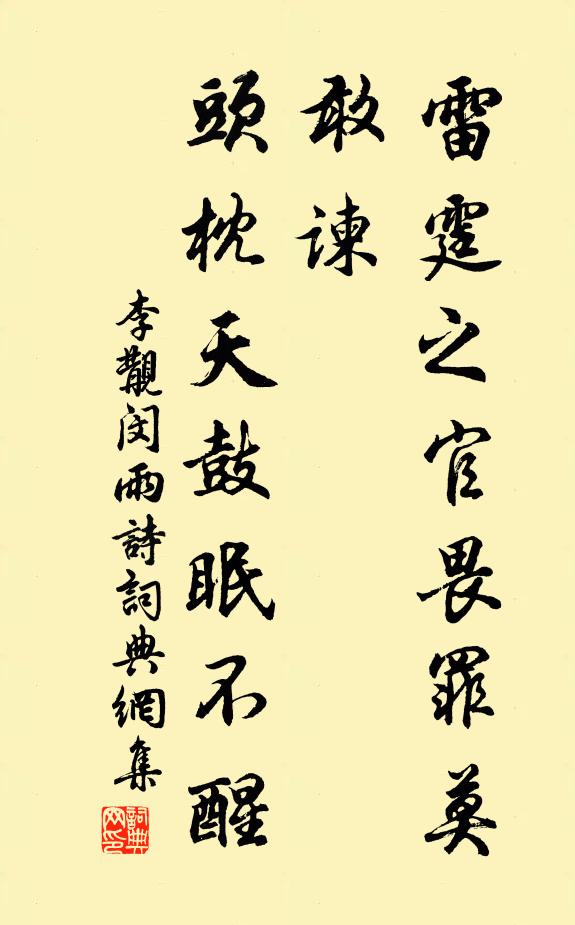 雷霆之官畏罪莫
敢諫
頭枕天鼓眠不醒
李觀閔雨詩詞典網集
詞典網印